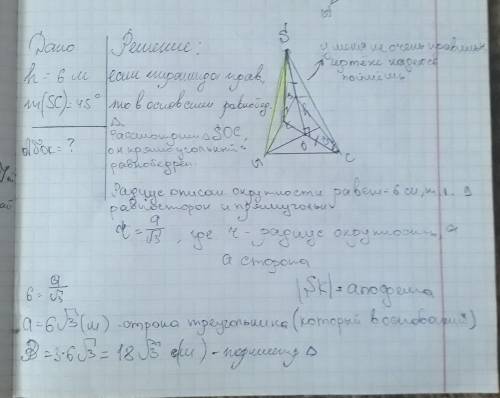 Дано
h = 6 м
m(SC) = 45°
= ?
Решение:
если пирамида прав,
то в основании равнобед.
Δ
Рассмотрим Δ SOC,
он прямоугольный
равнобедрен
S
O
C
у меня не очень правильн
чертёж надеюсь
поймёшь
Радиус описан окружности равен 6 см, т.к.
равносторон и прямоугольн
r = a/√3, где r - радиус окружности, a
a сторона
6 = a/√3
|SK| = апофема
a = 6√3 (м) - сторона треугольника (который в основании)
P = 3·6√3 = 18√3 (м) - Δ